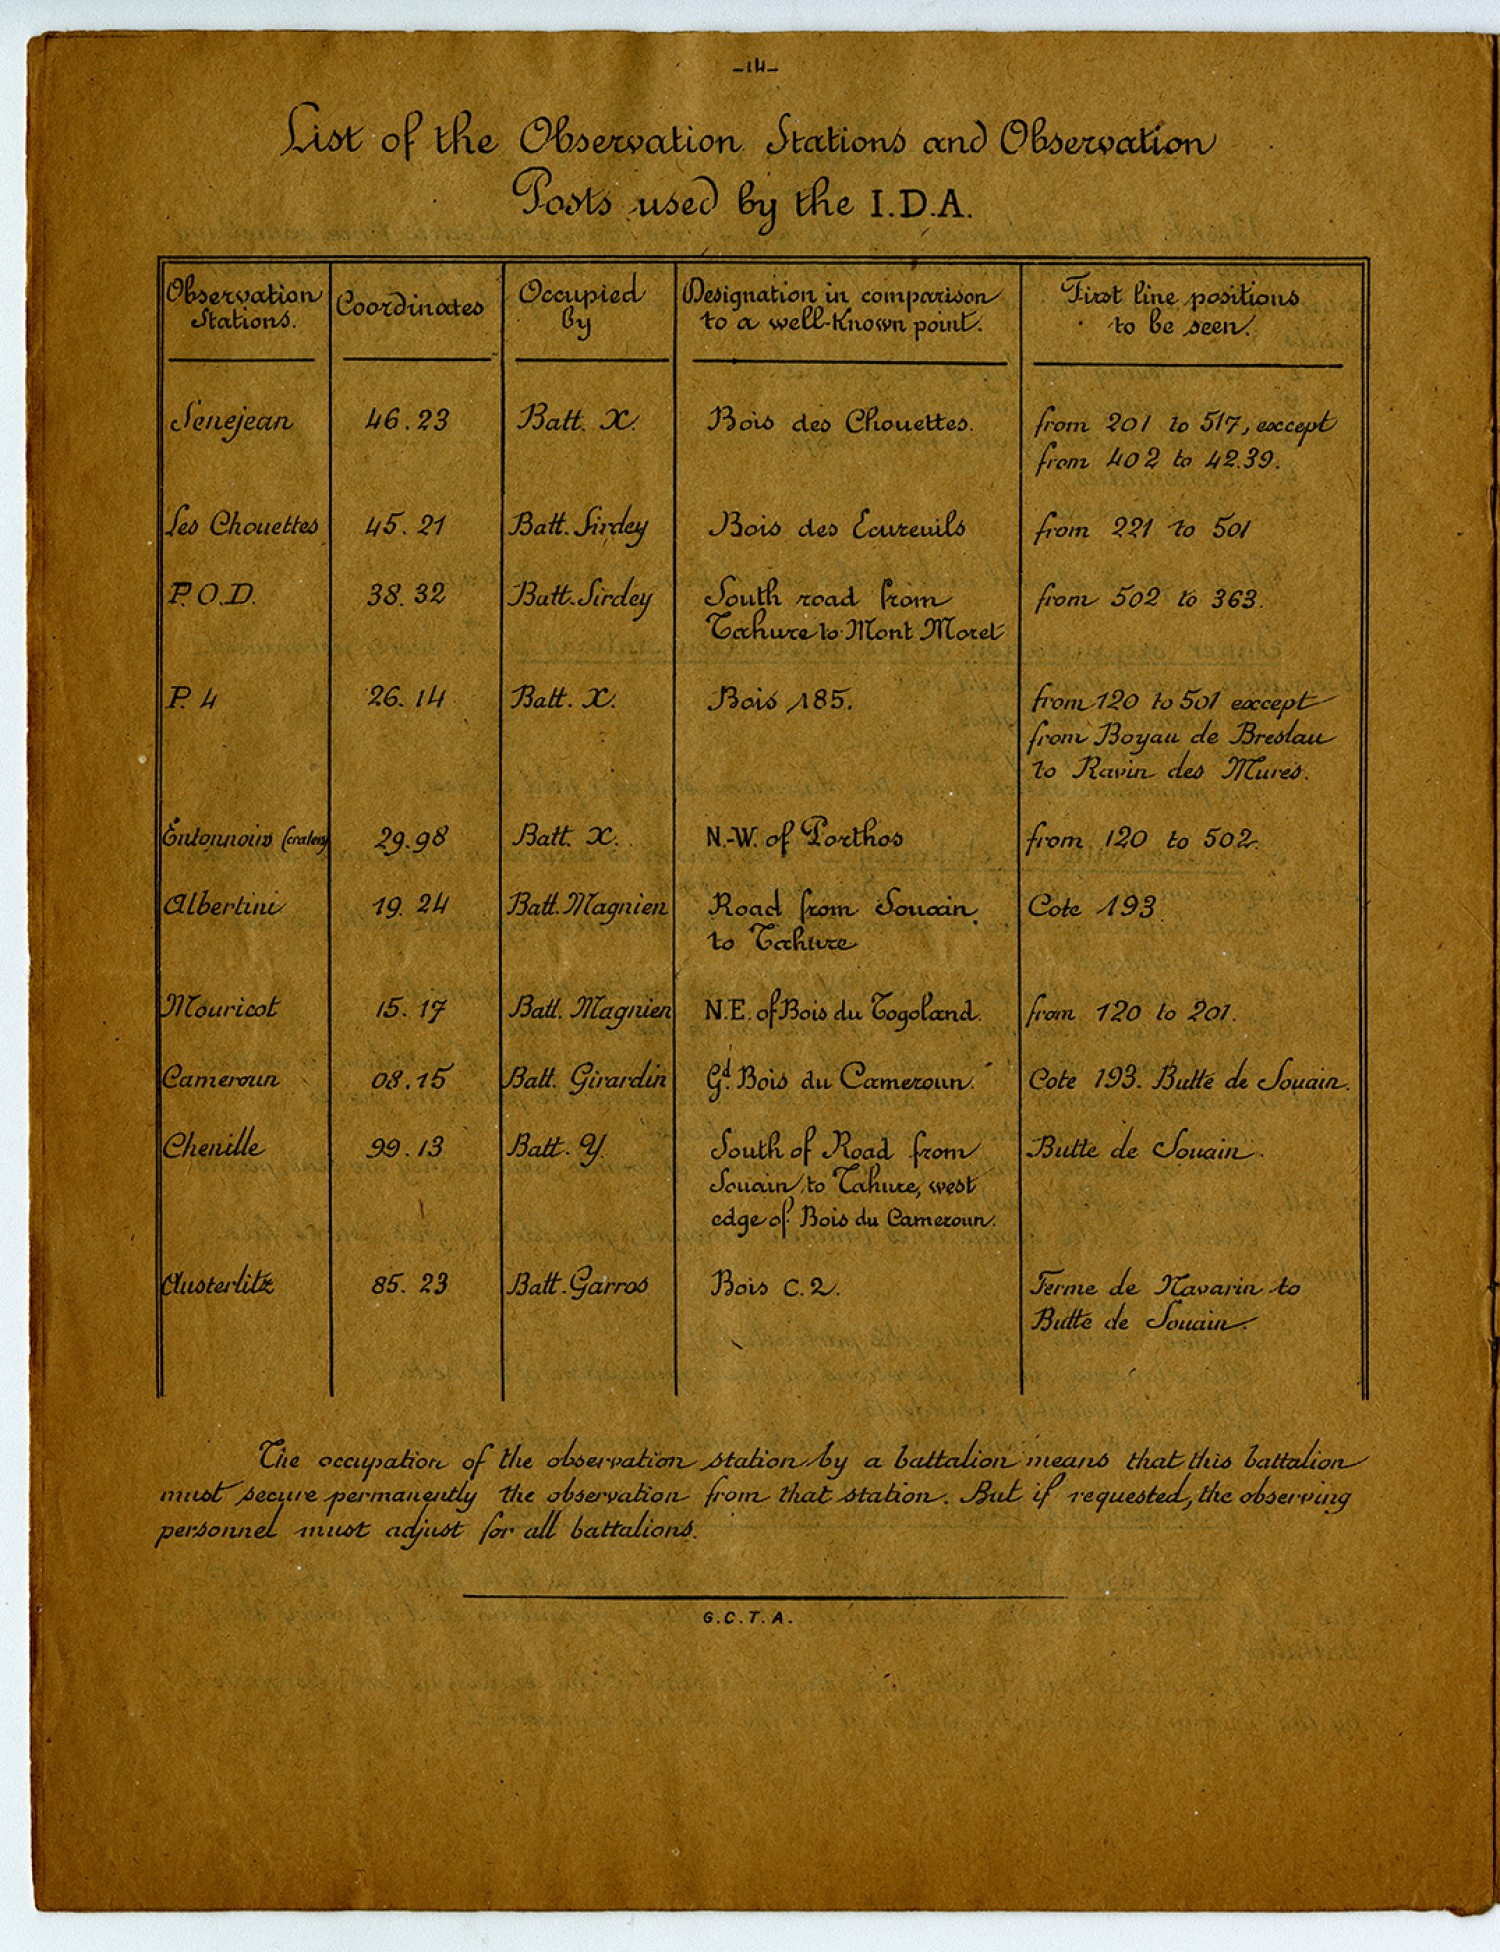 -14-
List of the Observation Stations and Observation
Posts used by the I.D.A.
Observation Stations. | Coordinates | Occupied by | Designation in comparison to a well-Known point. | First line positions to be seen.
Senejean | 46.23 | Batt. X. | Bois des Chouettes. | from 201 to 517, except
from 402 to 42.39.
Les Chouettes | 45.21 | Batt. Sirdey | Bois des Ecureuils | from 221 to 501
P.O.D. | 38.32 | Batt. Sirdey | South road from | from 502 to 363.
Tahure to Mont Moret
P. 4 | 26.14 | Batt. X. | Bois 185. | from 120 to 501 except
from Boyau de Breslau
to Ravin des Mures.
Entonnoirs (craters) | 29.98 | Batt. X. | N.-W. of Porthos | from 120 to 502.
Albertini | 19.24 | Batt. Magnien | Road from Souain | Cote 193.
to Tahure
Mouricot | 15.17 | Batt. Magnien | N.E. of Bois du Togoland. | from 120 to 201.
Cameroun | 08.15 | Batt. Girardin | Gd. Bois du Cameroun. | Cote 193. Butte de Souain.
Chenille | 99.13 | Batt. Y. | South of Road from | Butte de Souain.
Souain to Tahure, west
edge of Bois du Cameroun.
Austerlitz | 85.23 | Batt. Garros | Bois C.2. | Ferme de Navarin to
Butte de Souain.
The occupation of the observation station by a battalion means that this battalion
must secure permanently the observation from that station. But if requested, the observing
personnel must adjust for all battalions.
G.C.T.A.